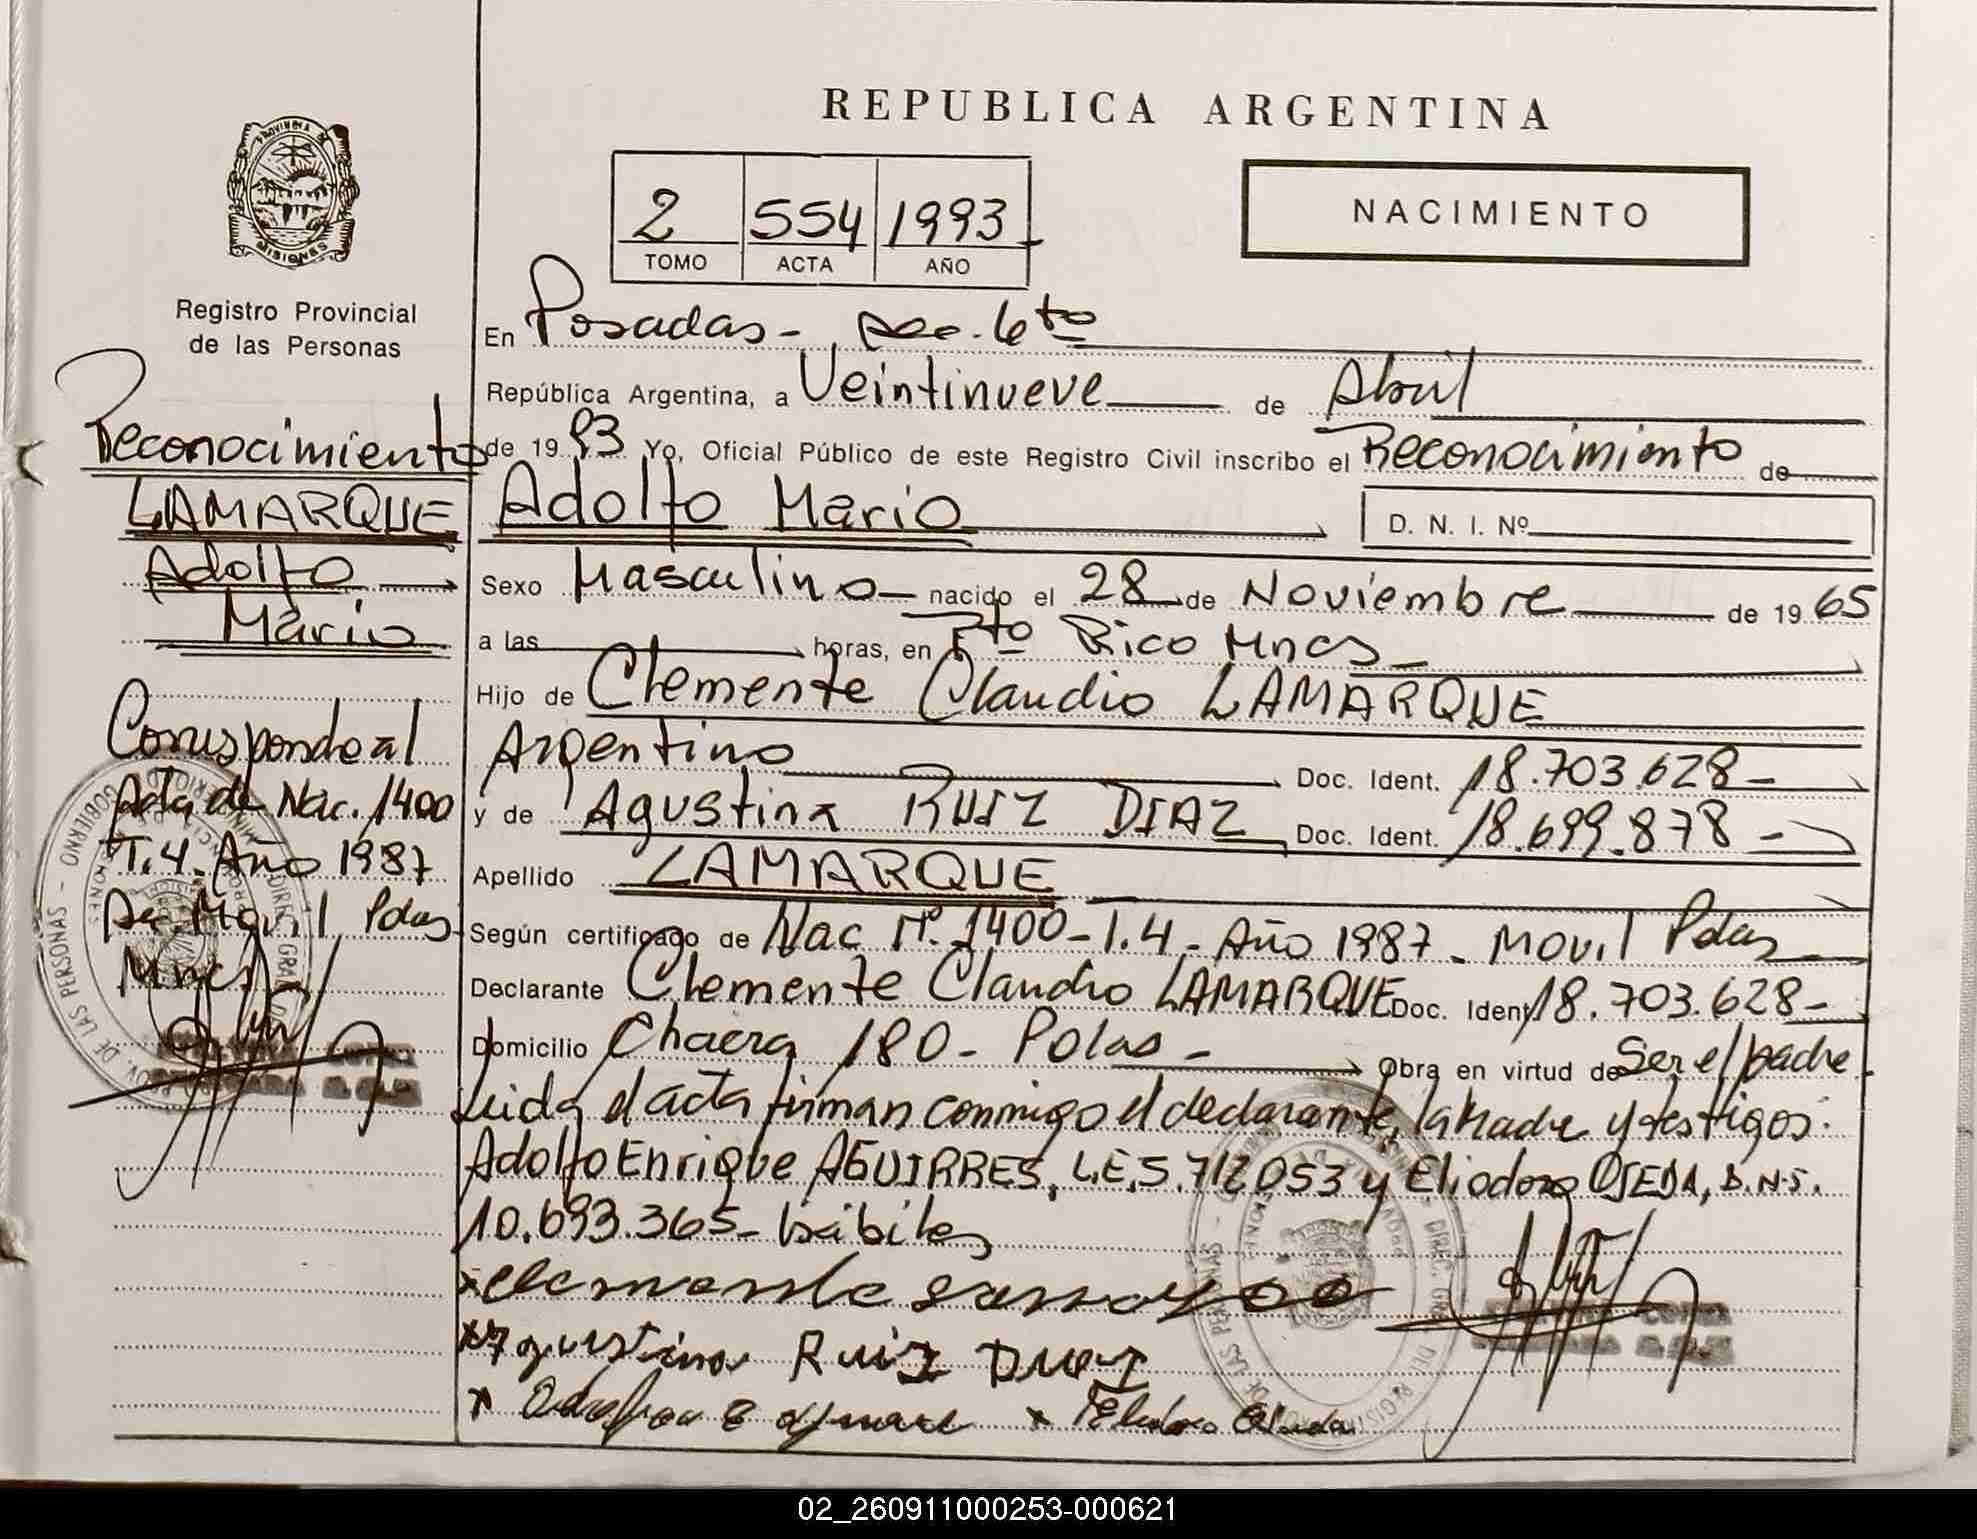 REPUBLICA ARGENTINA
PROVINCIA DE
MISIONES
Registro Provincial
de las Personas
2 554 1993
TOMO ACTA AÑO
NACIMIENTO
Reconocimiento
LAMARQUE
Adolfo
Mario
Corresponde al
Acta de Nac. 1400
T.4. Año 1987
Móvil Pdas
Mnes
En Posadas - Sec. 6to
República Argentina, a Veintinueve de Abril
de 1993 Yo, Oficial Público de este Registro Civil inscribo el Reconocimiento de
Adolfo Mario D. N. I. Nº
Sexo Masculino nacido el 28 de Noviembre de 1965
a las horas, en Pto Rico Mnes
Hijo de Clemente Claudio LAMARQUE
Argentino Doc. Ident. 18.703.628-
y de Agustina RUIZ DIAZ Doc. Ident. 18.699.878-
Apellido LAMARQUE
Según certificado de Nac Nº. 1400-T.4. Año 1987. MOVIL Pdas
Declarante Clemente Claudio LAMARQUE Doc. Ident. 18.703.628-
Domicilio Chacra 180- Pdas- Obra en virtud de Ser el padre.
Leida el acta firman conmigo el declarante, la Madre y testigos:
Adolfo Enrique AGUIRRES, L.E. 5.712.053 y Eliodoro OJEDA, D.N.I.
10.693.365- hábiles
Agustina Ruiz Diaz
02_260911000253-000621